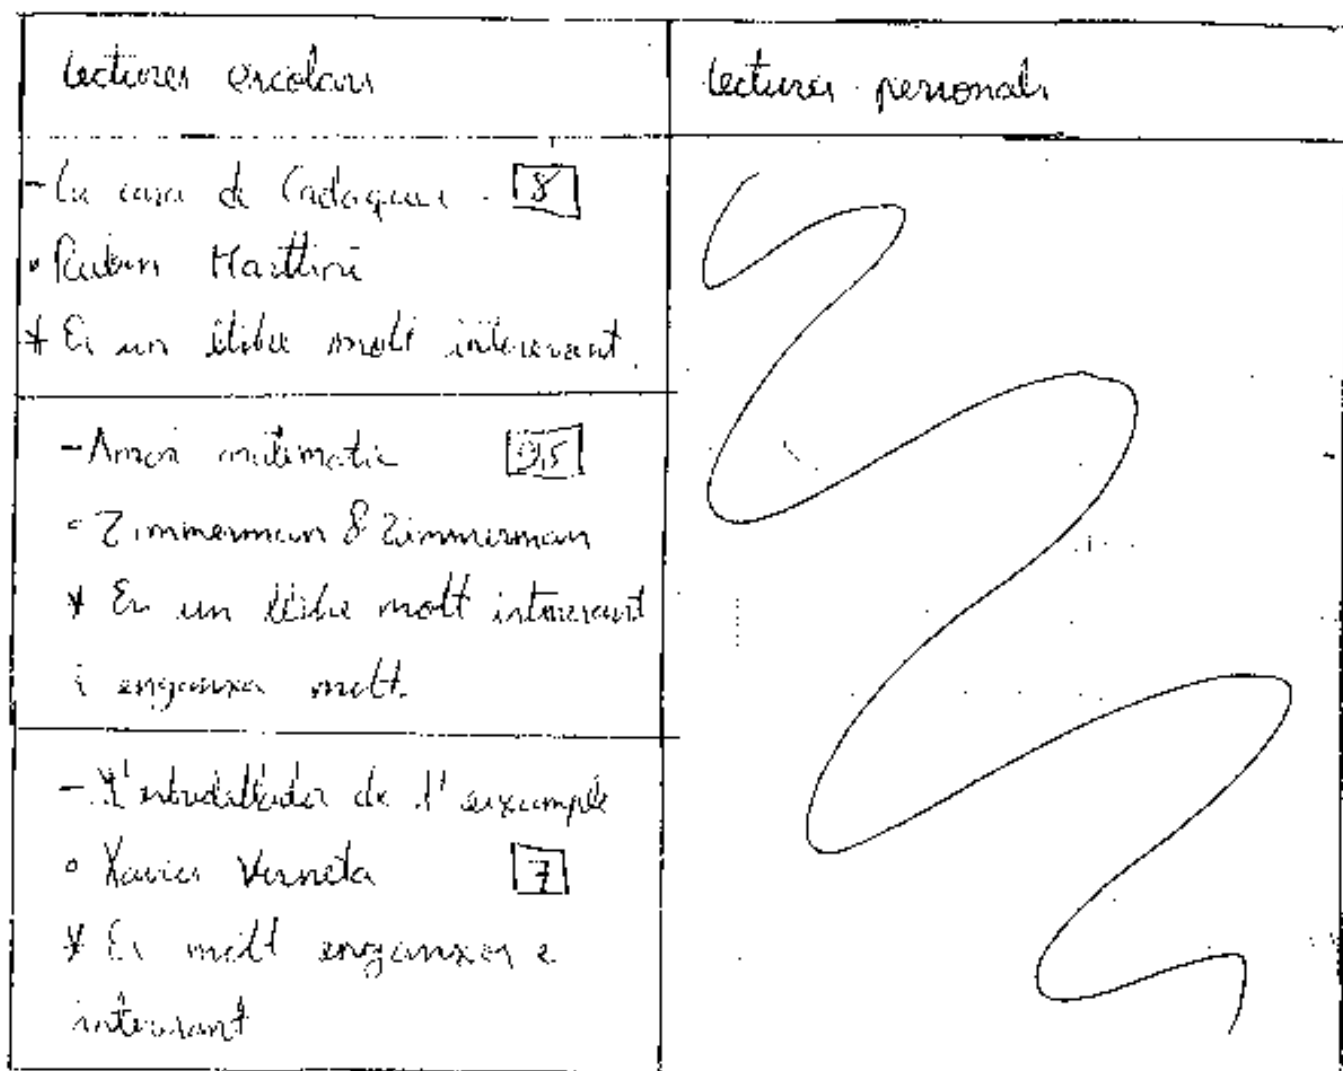 Lectures escolars
Lectures personals
- La casa de Cadaques. 8
• Ruben Marttini
* Es un llibre molt interesant.
- Amor matematic 9,5
• Zimmerman & Zimmerman
* Es un llibre molt interesant
i enganxa molt.
- L'esbudellador de l'eixample
• Xavier Verneta 7
* Es molt enganxos e
interesant